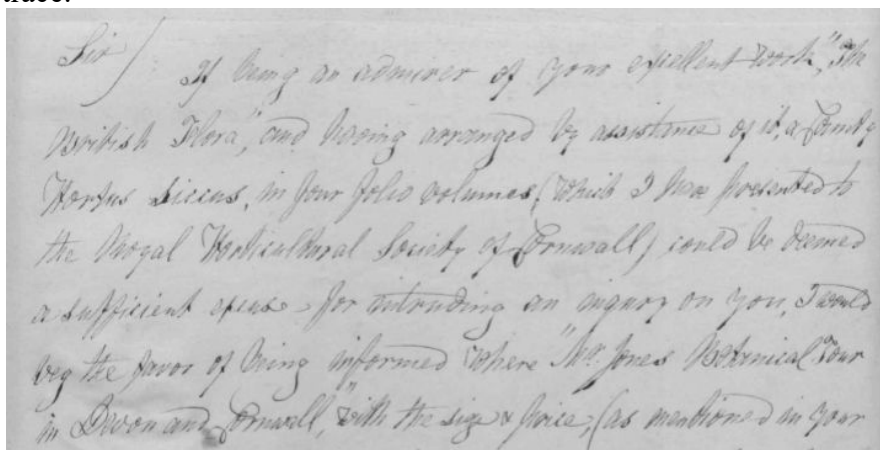 Sir/
If being an admirer of your excellent work, "The
British Flora", and having arranged by assistance of it, a County
Hortus Siccus, in four folio volumes, (which I have presented to
the Royal Horticultural Society of Cornwall) could be deemed
a sufficient excuse for intruding an inquiry on you, I would
beg the favor of being informed where "Mr. Jones Botanical Tour
in Devon and Cornwall," with the size & price, (as mentioned in your